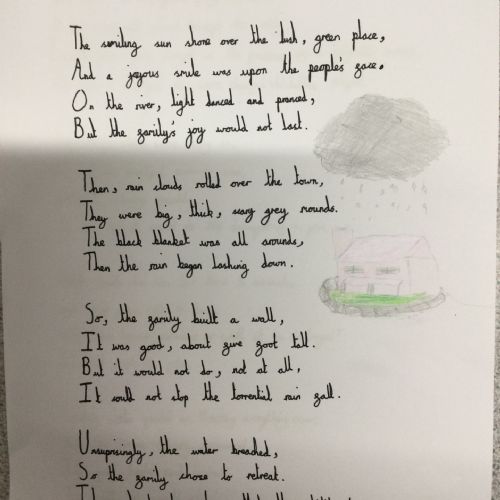 The smiling sun shone over the lush, green place,
And a joyous smile was upon the people's face.
On the river, light danced and pranced,
But the family's joy would not last.
Then, rain clouds rolled over the town,
They were big, thick, scary grey mounds.
The black blanket was all arounds,
Then the rain began lashing down.
So, the family built a wall,
It was good, about five foot tall.
But it would not do, not at all,
It could not stop the torrential rain fall.
Unsuprisingly, the water breached,
So the family chose to retreat.